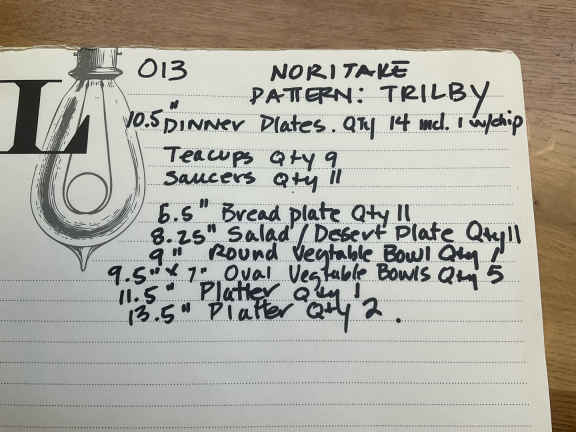 L
013 NORITAKE
PATTERN: TRILBY
10.5" DINNER Plates. Qty 14 incl. 1 w/chip
Teacups Qty 9
Saucers Qty 11
6.5" Bread plate Qty 11
8.25" Salad / Desert Plate Qty 11
9" Round Vegtable Bowl Qty 1
9.5" x 7" Oval Vegtable Bowls Qty 5
11.5" Platter Qty 1
13.5" Platter Qty 2.